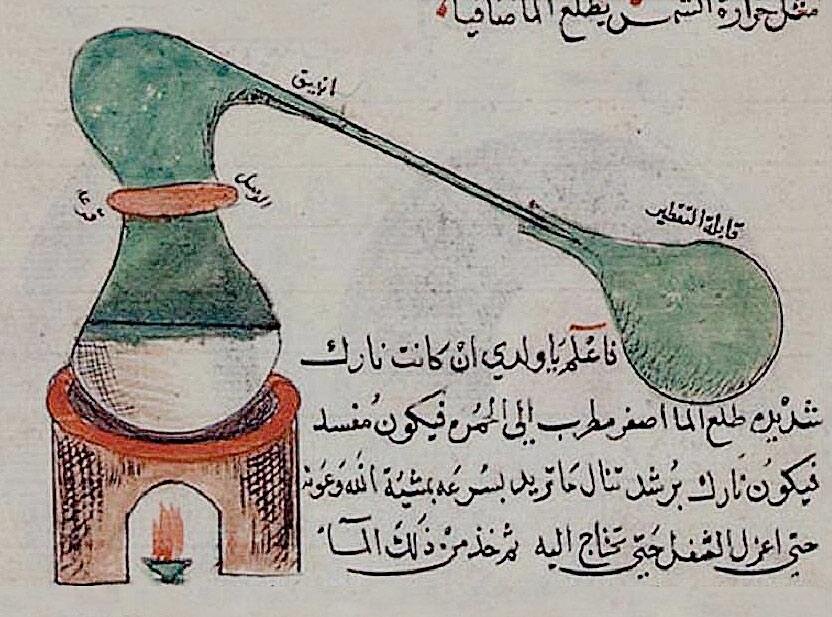 مثل حرارة الشمس يطلع الما صافيا
انبيق
الوصل
قابلة التقطير
فاعلم يا ولدي ان كانت نارك
شديده طلع الما اصفر مطرب إلى الحمره فيكون مفسد
فيكون نارك برشد تنال ما تريد بسرعه بمشية الله وعونه
حتى اعزل الثفل حتى تحتاج اليه ثم خذ من ذلك المآء